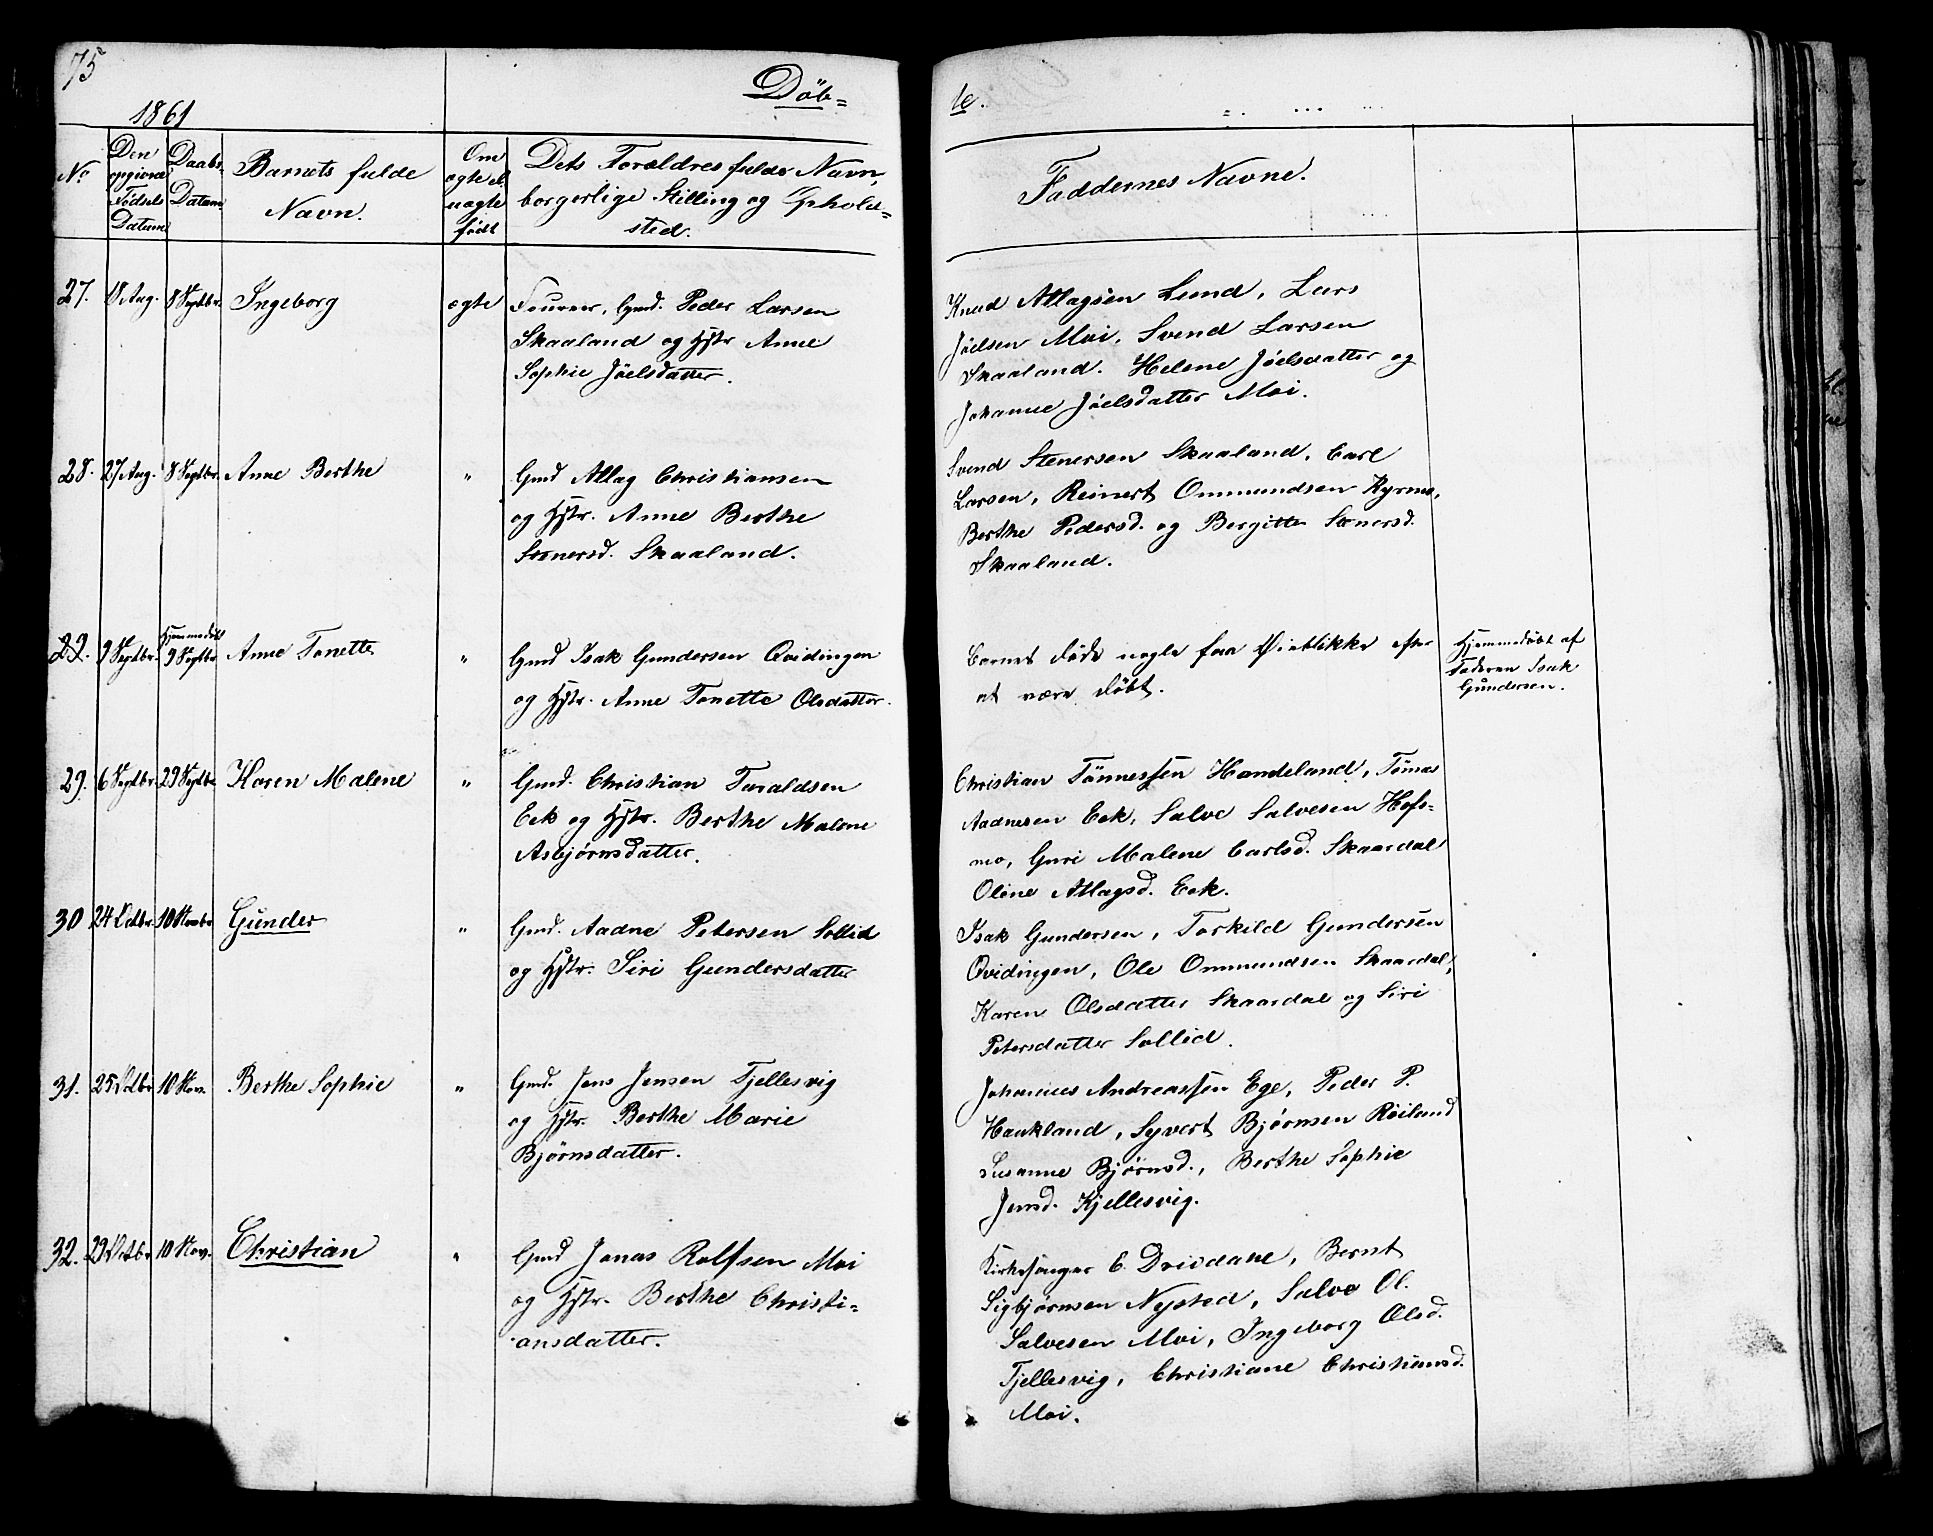 75
1861
Döb=
te.
No
Den opgivne Fødsels Datum
Daabs Datum
Barnets fulde Navn.
Om ægte el. uægte født
Dets Forældres fulde Navn, borgerlige Stilling og Opholdsted.
Faddernes Navne.
27. 18 Aug. 8 Septbr. Ingeborg ægte
Gmd. Peder Larsen
Skaaland og Hstr Anne
Sophie Jöelsdatter.
Knud Atlagsen Lund, Lars
Jöelsen Moi, Svend Larsen
Skaaland. Helene Jöelsdatter og
Johanne Jöelsdatter Moi.
28. 27 Aug. 8 Septbr. Anne Berthe "
Gmd Atlag Christiansen
og Hstr. Anne Berthe
Stenersd. Skaaland.
Svend Stenersen Skaaland, Carl
Larsen, Reinert Ommundsen Kyrmo,
Berthe Pedersd. og Bergitte Stenersd.
Skaaland.
29. 9 Septbr. Hjemmedöbt 9 Septbr. Anne Tonette "
Gmd Isak Gundersen Qvidingen
og Hstr. Anne Tonette Olsdatter.
Barnet døde nogle faa Øieblikke efter
at være døbt.
Hjemmedøbt af
Faderen Isak
Gundersen.
29. 6 Septbr. 29 Septbr Karen Malene "
Gmd. Christian Taraldsen
Eek og Hstr. Berthe Malene
Asbjørnsdatter.
Christian Tönnessen Handeland, Tönnes
Aadnesen Eek, Salve Salvesen Hofs-
mo, Guri Malene Carlsd. Skaardal
Oline Atlagsd. Eek.
30 24 Octbr. 10 Novbr Gunder "
Gmd. Aadne Petersen Sollid
og Hstr. Siri Gundersdatter
Isak Gundersen, Torkild Gundersen
Qvidingen, Ole Ommundsen Skaardal,
Karen Olsdatter Skaardal og Siri
Petersdatter Sollid.
31. 25 Octbr 10 Nov. Berthe Sophie "
Gmd. Jens Jensen Tjellesvig
og Hstr. Berthe Marie
Bjørnsdatter.
Johannes Andreassen Ege, Peder P.
Haukland, Syvert Bjørnsen Röiland
Susanne Bjørnsd., Berthe Sophie
Jensd. Kjellesvig.
32. 29 Octbr 10 Nov. Christian "
Gmd Jonas Rolfsen Moi
og Hstr. Berthe Christi-
ansdatter.
Kirkesanger E. Drivdahl, Bernt
Sigbjørnsen Nysted, Salve Ol.
Salvesen Moi, Ingeborg Olsd.
Tjellesvig, Christiane Christiansd.
Moi.